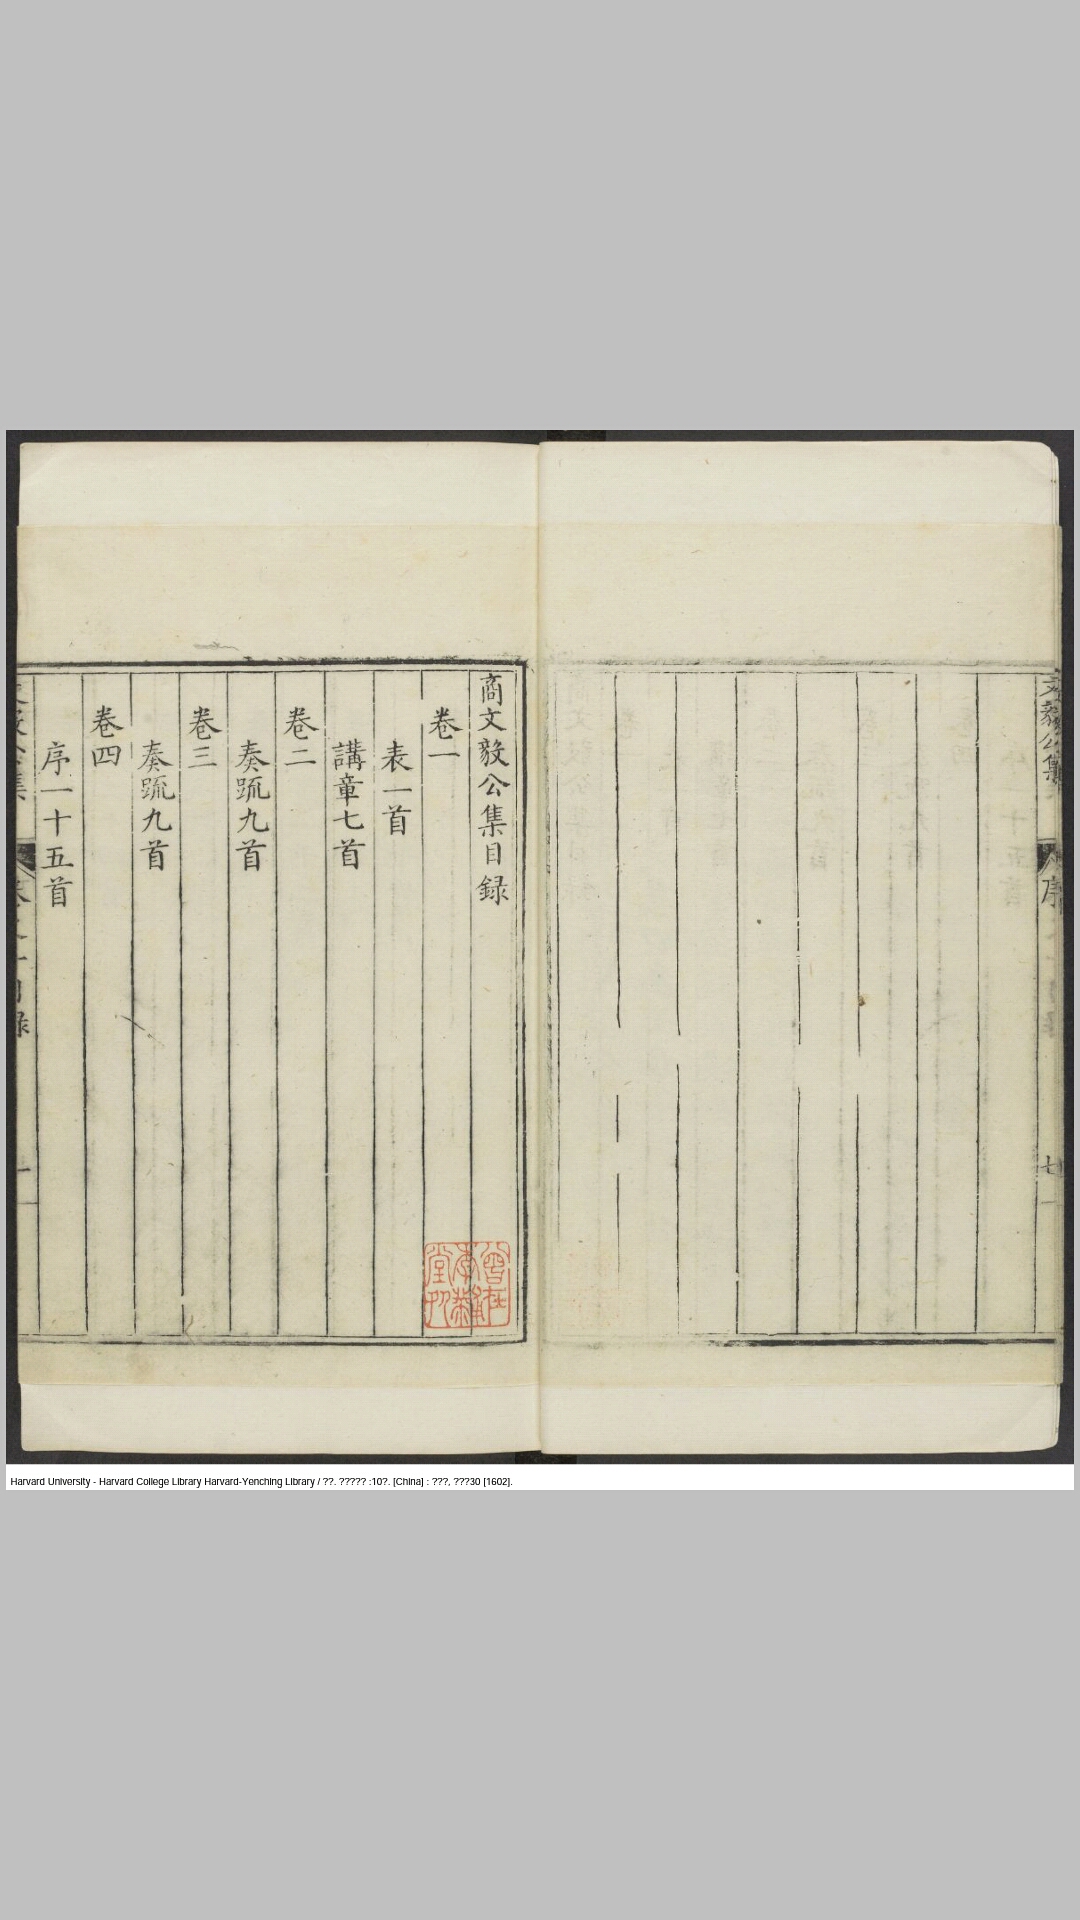 商文毅公集目録
卷一
表一首
講章七首
卷二
奏䟽九首
卷三
奏䟽九首
卷四
序一十五首
文毅公集
序
七
Harvard University - Harvard College Library Harvard-Yenching Library / ??. ????? :10?. [China] : ???, ???30 [1602].